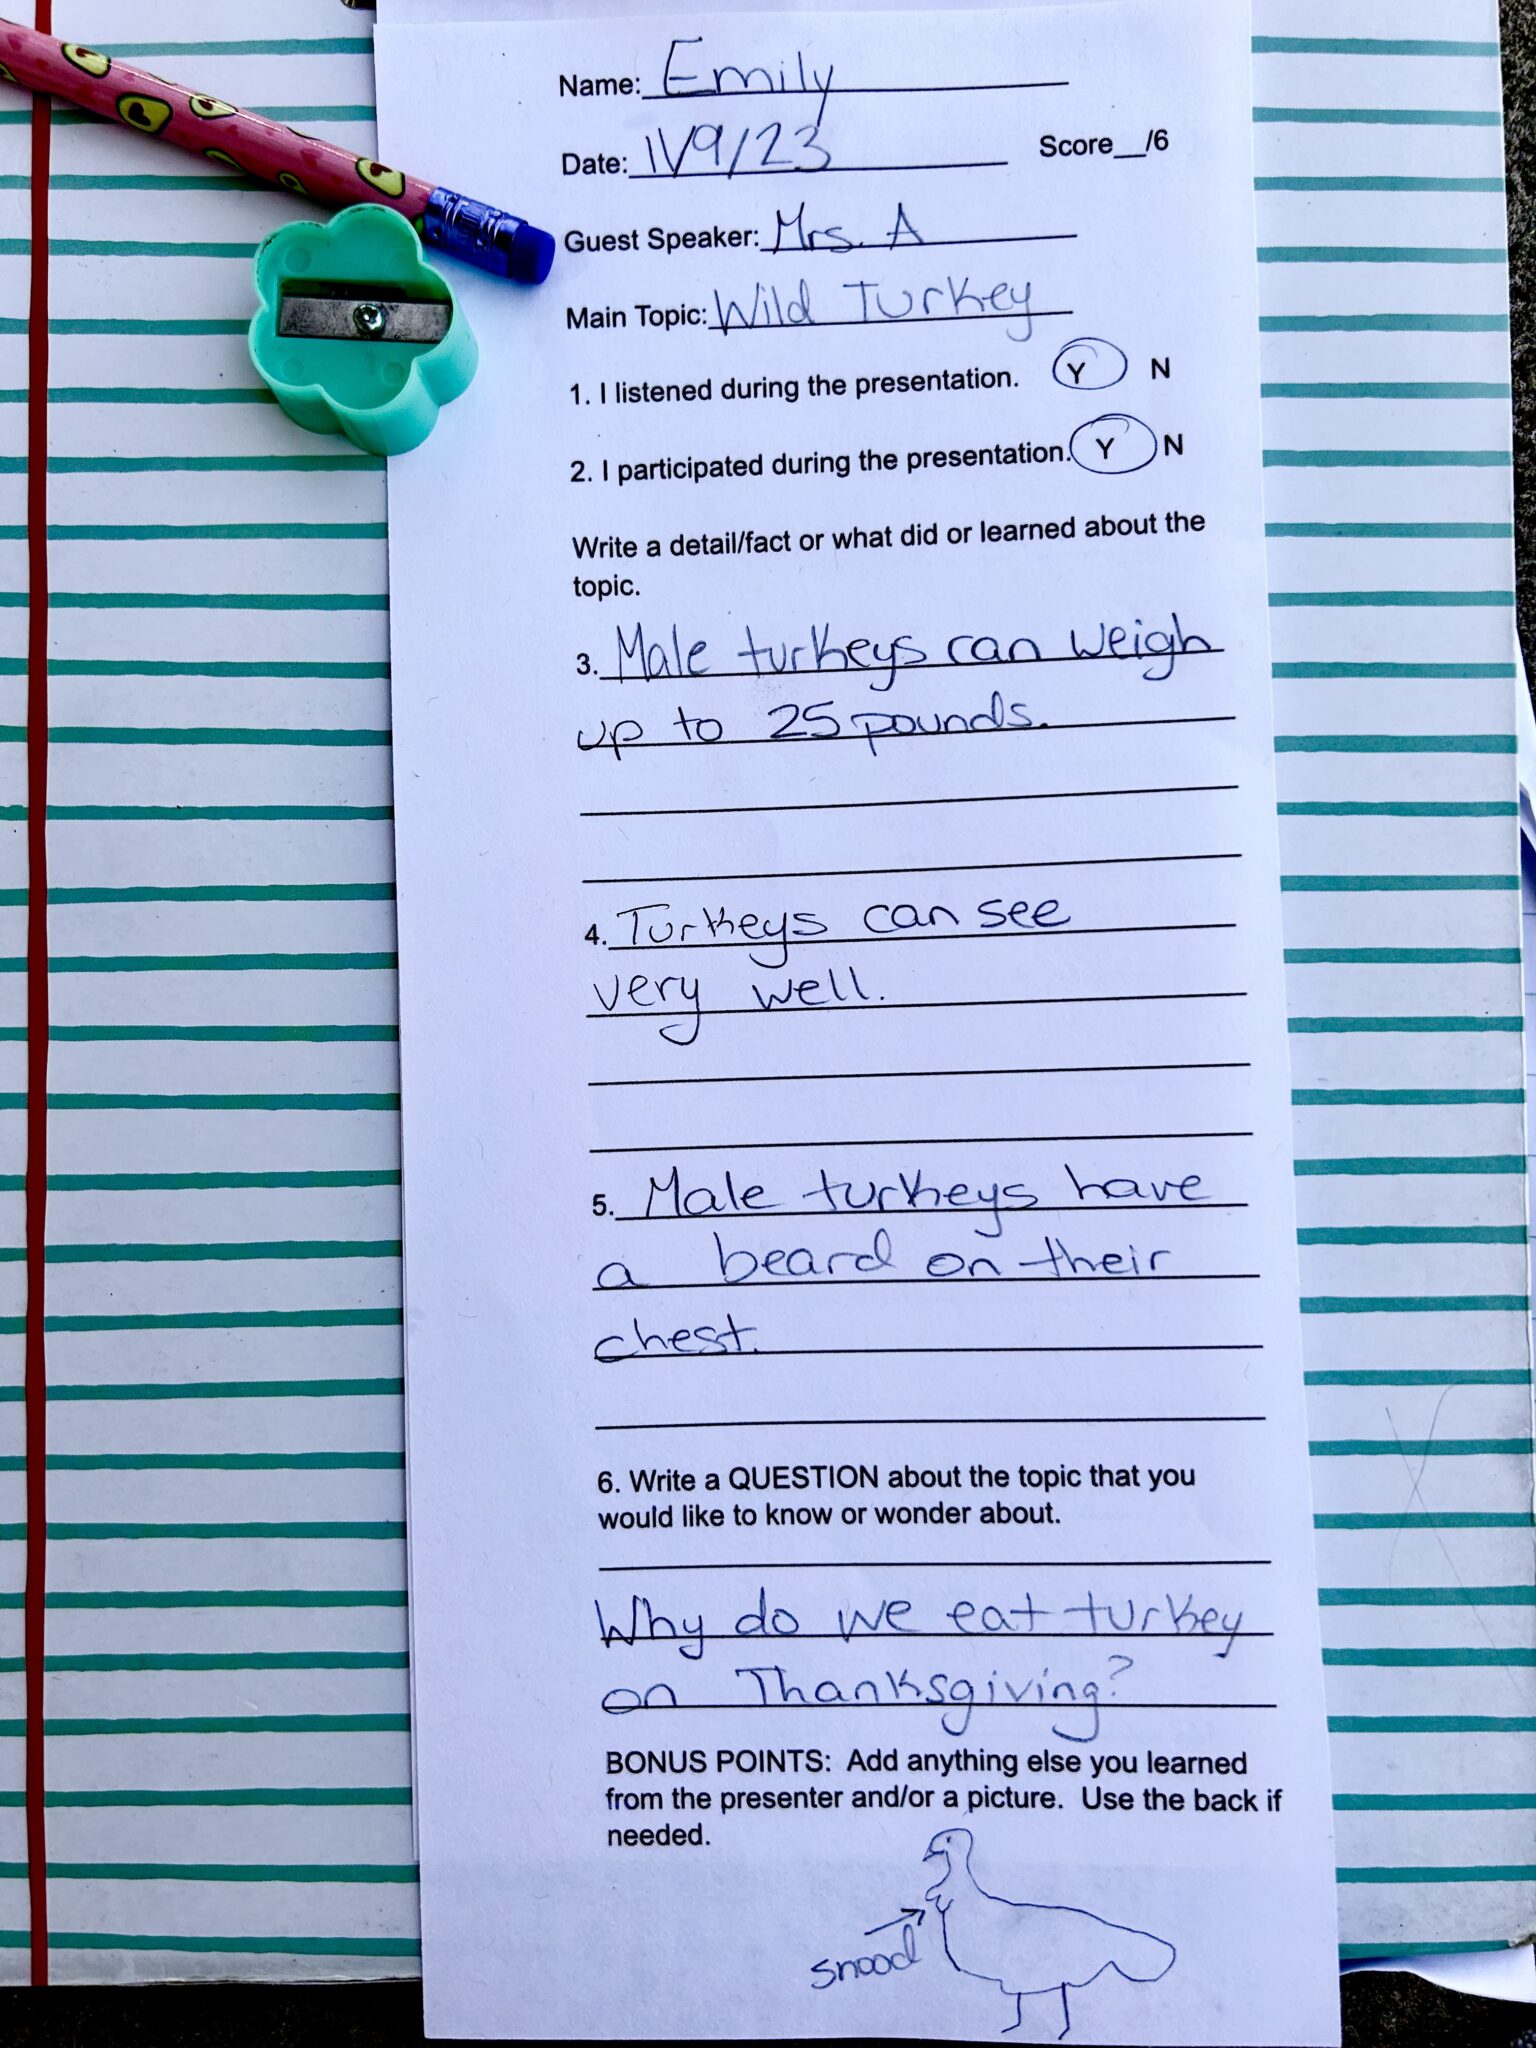 Name: Emily
Date: 11/9/23 Score__/6
Guest Speaker: Mrs. A
Main Topic: Wild Turkey
1. I listened during the presentation. Y N
2. I participated during the presentation. Y N
Write a detail/fact or what did or learned about the
topic.
3. Male turkeys can weigh
up to 25 pounds.
4. Turkeys can see
very well.
5. Male turkeys have
a beard on their
chest.
6. Write a QUESTION about the topic that you
would like to know or wonder about.
Why do we eat turkey
on Thanksgiving?
BONUS POINTS: Add anything else you learned
from the presenter and/or a picture. Use the back if
needed.
snood